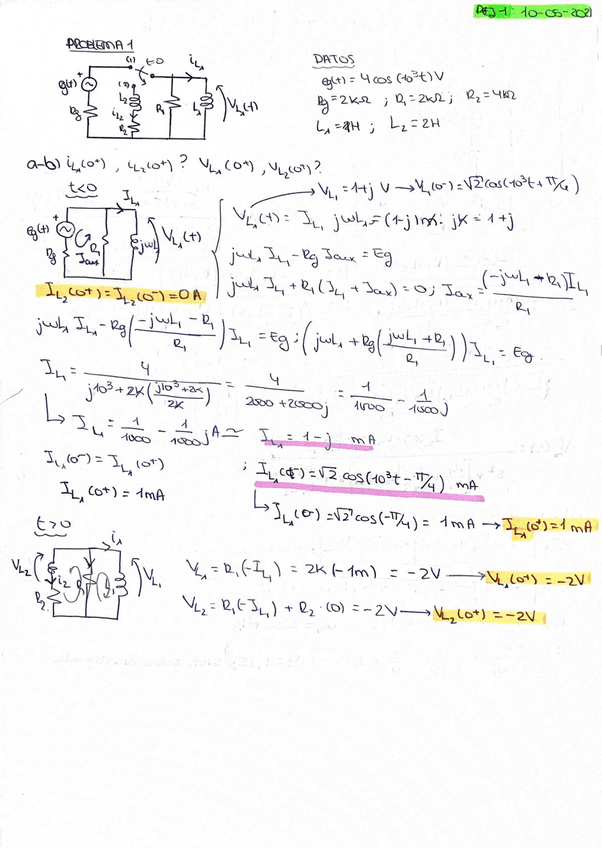 PEJ-1 10-05-202
PROBLEMA 1
(1) t=0 iL1
eg(t) + (2) L2 iL2 R2 R1 L1 VL1(t)
Rg
DATOS
eg(t) = 4 cos (10³t) V
Rg = 2kΩ ; R1 = 2kΩ ; R2 = 4kΩ
L1 = 1H ; L2 = 2H
a-b) iL1(0+) , iL2(0+) ? VL1(0+) , VL2(0+)?
t<0
IL1
eg(t) + Rg Jaux R1 jωL1 VL1(t)
VL1 = 1+j V → VL1(0-) = √2 cos(10³t + π/4)
VL1(t) = IL1 jωL1 = (1-j) 1m · jk = 1+j
jωL1 IL1 - Rg Jaux = Eg
jωL1 IL1 + R1 (IL1 + Jaux) = 0 ; Jaux = (-jωL1 - R1) IL1 / R1
IL2(0+) = IL2(0-) = 0 A
jωL1 IL1 - Rg ((-jωL1 - R1) / R1) IL1 = Eg ; (jωL1 + Rg ((jωL1 + R1) / R1)) IL1 = Eg
IL1 = 4 / (j10³ + 2k ((j10³ + 2k) / 2k)) = 4 / (2000 + 2000j) = 1/1000 - 1/1000 j
↳ IL1 = 1/1000 - 1/1000 j A ≃ IL1 = 1-j mA
IL1(0-) = IL1(0+) ; IL1(0-) = √2 cos (10³t - π/4) mA
IL1(0+) = 1mA ↳ IL1(0-) = √2 cos(-π/4) = 1mA → IL1(0+) = 1 mA
t>0
i1
VL2 i2 R2 VL1
VL1 = R1 (-IL1) = 2k (-1m) = -2V → VL1(0+) = -2V
VL2 = R1(-IL1) + R2 · (0) = -2V → VL2(0+) = -2V